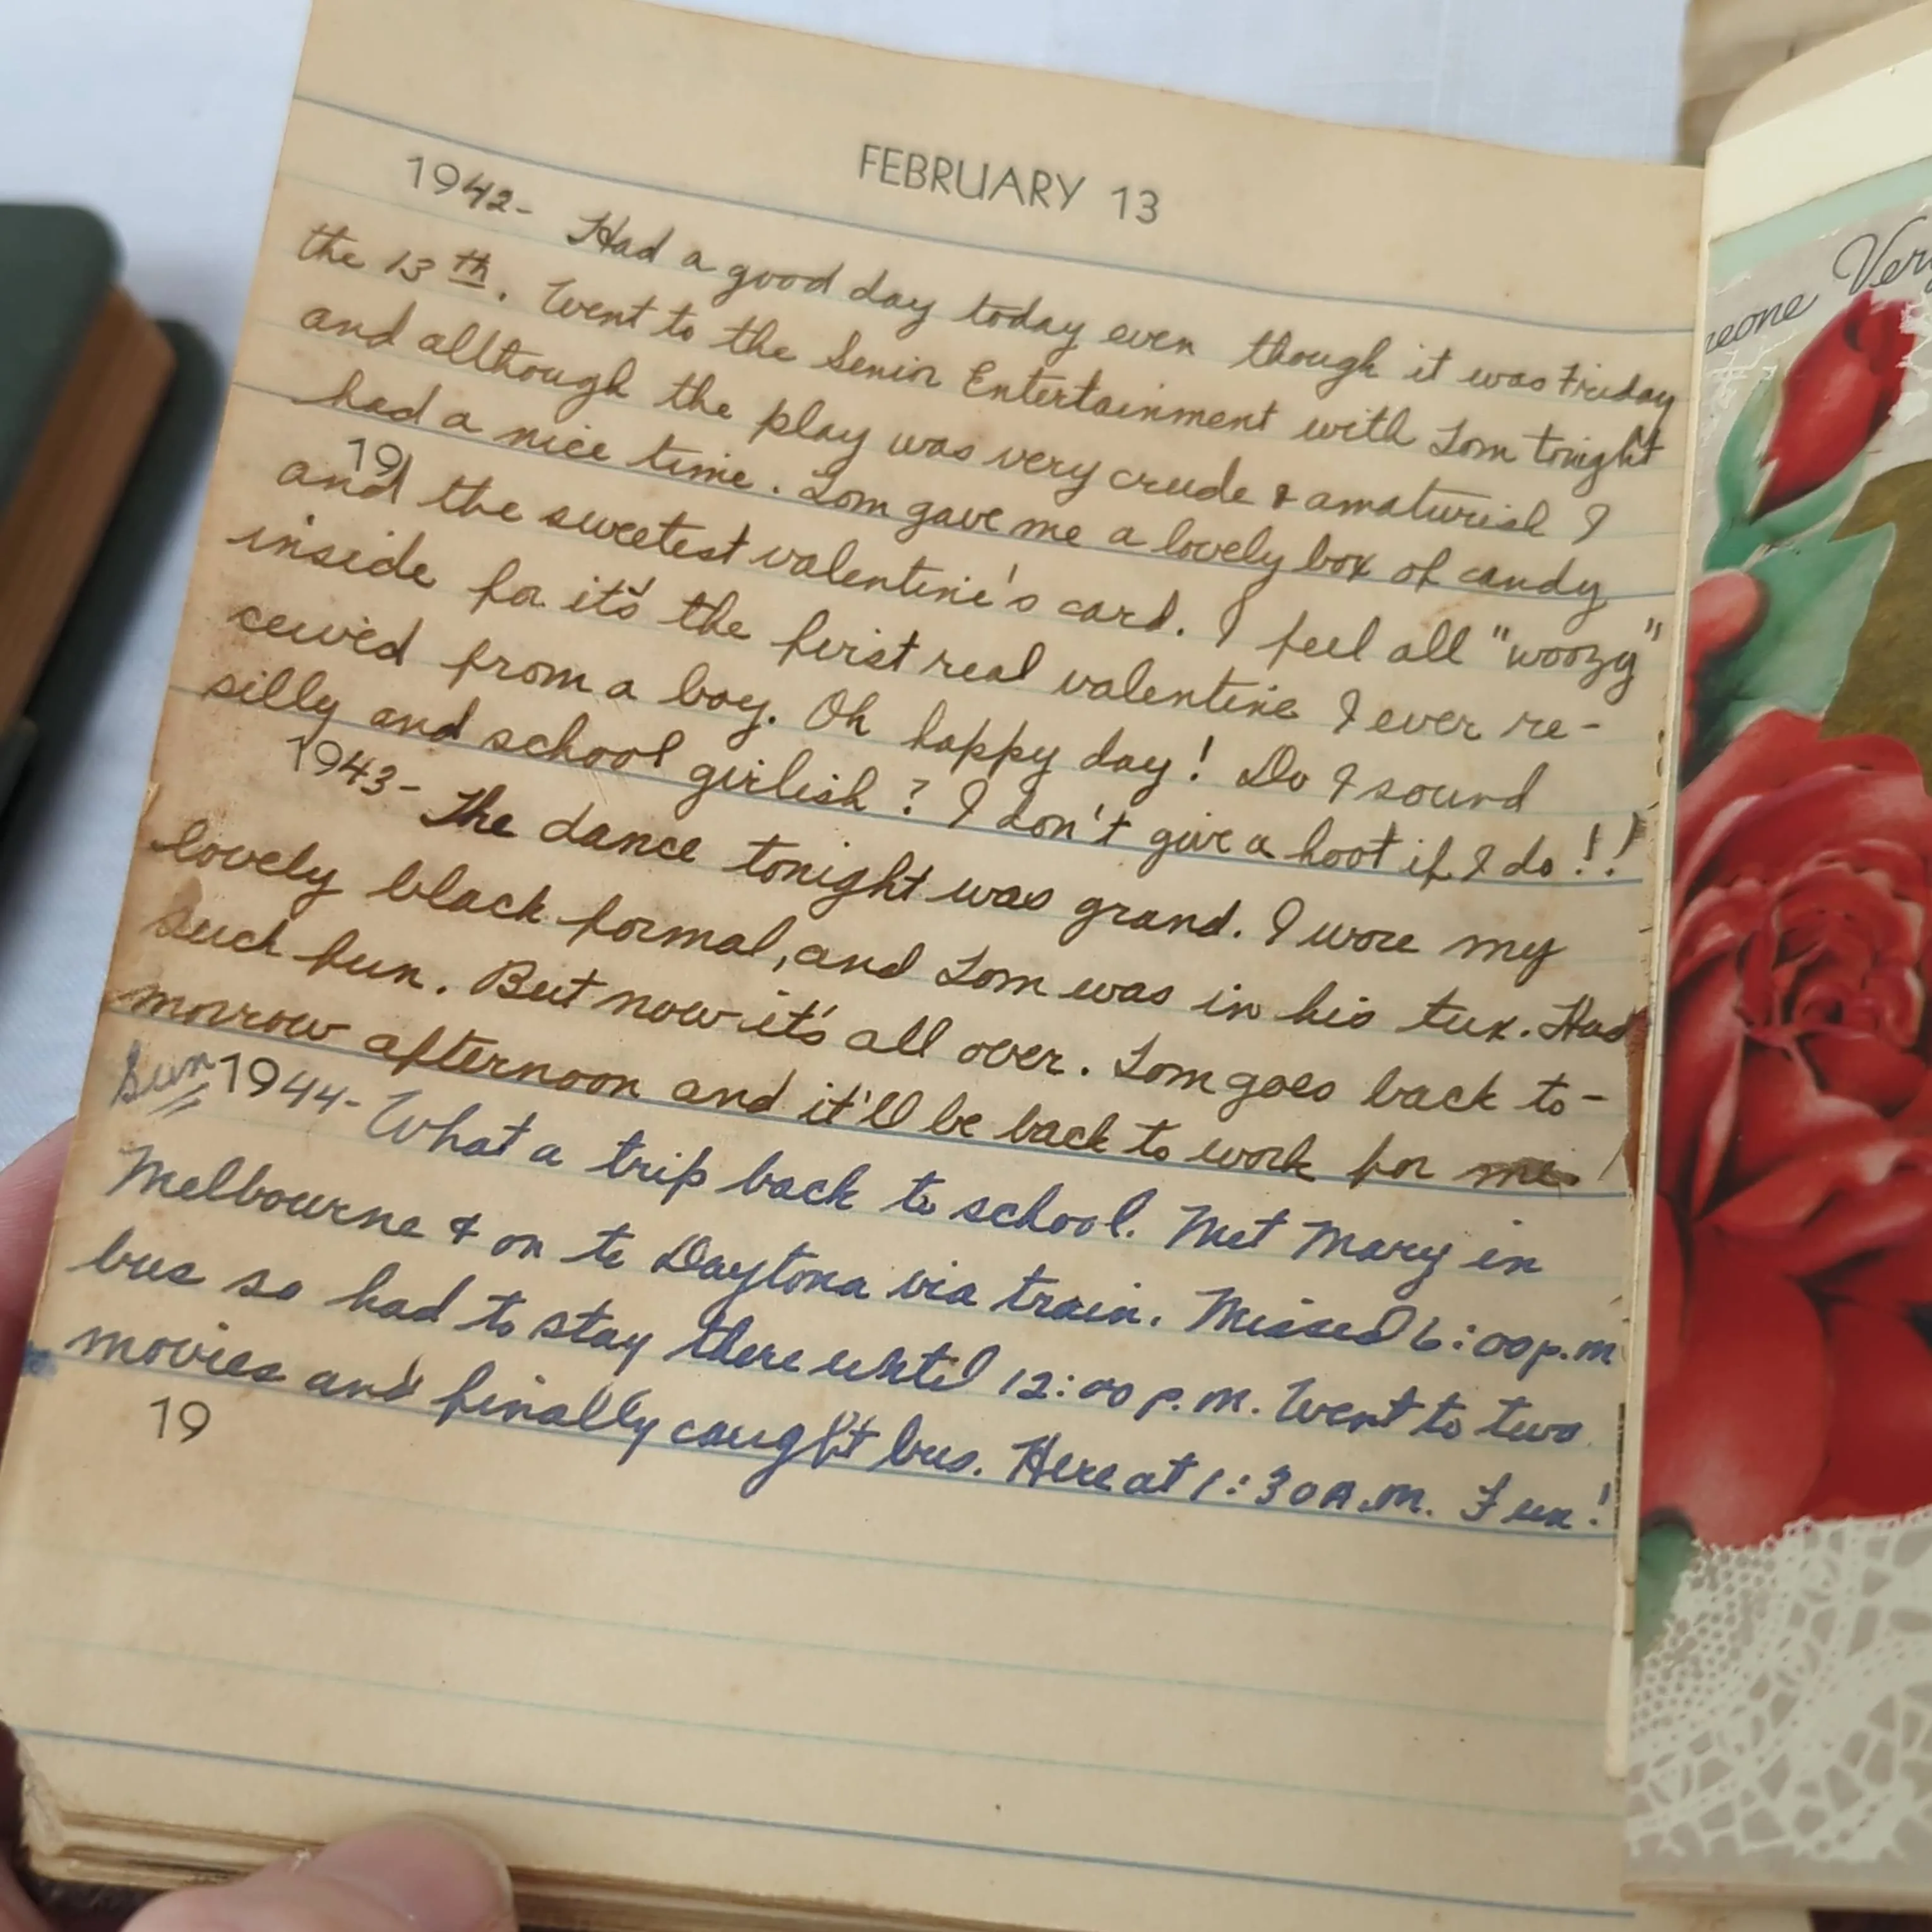 FEBRUARY 13
1942- Had a good day today even though it was Friday
the 13th. Went to the Senior Entertainment with Tom tonight
and allthough the play was very crude & amaturish I
had a nice time. Tom gave me a lovely box of candy
19
and the sweetest valentine's card. I feel all "woozy"
inside for it's the first real valentine I ever re-
ceived from a boy. Oh happy day! Do I sound
silly and school girlish? I don't give a hoot if I do!!
1943- The dance tonight was grand. I wore my
lovely black formal, and Tom was in his tux. Had
such fun. But now it's all over. Tom goes back to-
morrow afternoon and it'll be back to work for me.
Sun 1944- What a trip back to school. Met Mary in
Melbourne & on to Daytona via train. Missed 6:00p.m
bus so had to stay there until 12:00 p.m. Went to two
movies and finally caught bus. Here at 1:30 A.M. Fun!
19
Very